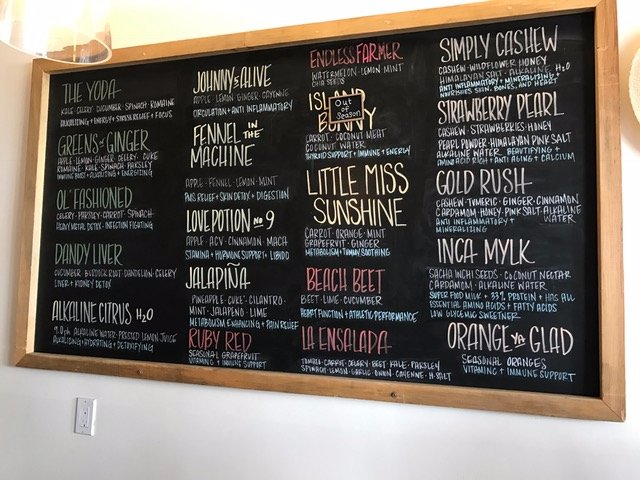 THE YODA
KALE · CELERY · CUCUMBER · SPINACH · ROMAINE
ALKALIZING + ENERGY + STRESS RELIEF + FOCUS
GREENS & GINGER
APPLE · LEMON · GINGER · CELERY · CUKE
ROMAINE · KALE · SPINACH · PARSLEY
IMMUNE BOOST + ALKALIZING + ENERGIZING
OL' FASHIONED
CELERY · PARSLEY · CARROT · SPINACH
HEAVY METAL DETOX · INFECTION FIGHTING
DANDY LIVER
CUCUMBER · BURDOCK ROOT · DANDELION · CELERY
LIVER + KIDNEY DETOX
ALKALINE CITRUS H2O
9.0 ph ALKALINE WATER · PRESSED LEMON JUICE
ALKALIZING + HYDRATING + DETOXIFYING
JOHNNY'S ALIVE
APPLE · LEMON · GINGER · CAYENNE
CIRCULATION + ANTI INFLAMMATORY
FENNEL IN THE
MACHINE
APPLE · FENNEL · LEMON · MINT
PMS RELIEF + SKIN DETOX + DIGESTION
LOVE POTION No 9
APPLE · ACV · CINNAMON · MACA
STAMINA + HORMONE SUPPORT + LIBIDO
JALAPIÑA
PINEAPPLE · CUKE · CILANTRO ·
MINT · JALAPENO · LIME
METABOLISM ENHANCING + PAIN RELIEF
RUBY RED
SEASONAL GRAPEFRUIT
VITAMINC + IMMUNE SUPPORT
ENDLESS FARMER
WATERMELON · LEMON · MINT
CHIA SEEDS
ISLAND
BUNNY
Out of
Season
CARROT · COCONUT MEAT
COCONUT WATER
THYROID SUPPORT + IMMUNE + ENERGY
LITTLE MISS
SUNSHINE
CARROT · ORANGE · MINT
GRAPEFRUIT · GINGER
METABOLISM + TUMMY SOOTHING
BEACH BEET
BEET · LIME · CUCUMBER
HEART FUNCTION + ATHLETIC PERFORMANCE
LA ENSALADA
TOMATO · CARROT · CELERY · BEET · KALE · PARSLEY
SPINACH · LEMON · GARLIC · ONION · CAYENNE · H·SALT
SIMPLY CASHEW
CASHEW · WILDFLOWER HONEY
HIMALAYAN SALT · ALKALINE H2O
ANTI INFLAMMATORY + MINERALIZING
NOURISHES SKIN, BONES, AND HEART
STRAWBERRY PEARL
CASHEW · STRAWBERRIES · HONEY
PEARL POWDER · HIMALAYAN PINK SALT
ALKALINE WATER BEAUTIFYING +
AMINO ACID RICH + ANTI AGING + CALCIUM
GOLD RUSH
CASHEW · TUMERIC · GINGER · CINNAMON
CARDAMOM · HONEY · PINK SALT · ALKALINE
WATER
ANTI INFLAMMATORY +
MINERALIZING
INCA MYLK
SACHA INCHI SEEDS · COCONUT NECTAR
CARDAMOM · ALKALINE WATER
SUPER FOOD MILK + 33% PROTEIN + HAS ALL
ESSENTIAL AMINO ACIDS + FATTY ACIDS
LOW GLYCEMIC SWEETNER
ORANGE YA GLAD
SEASONAL ORANGES
VITAMINC + IMMUNE SUPPORT